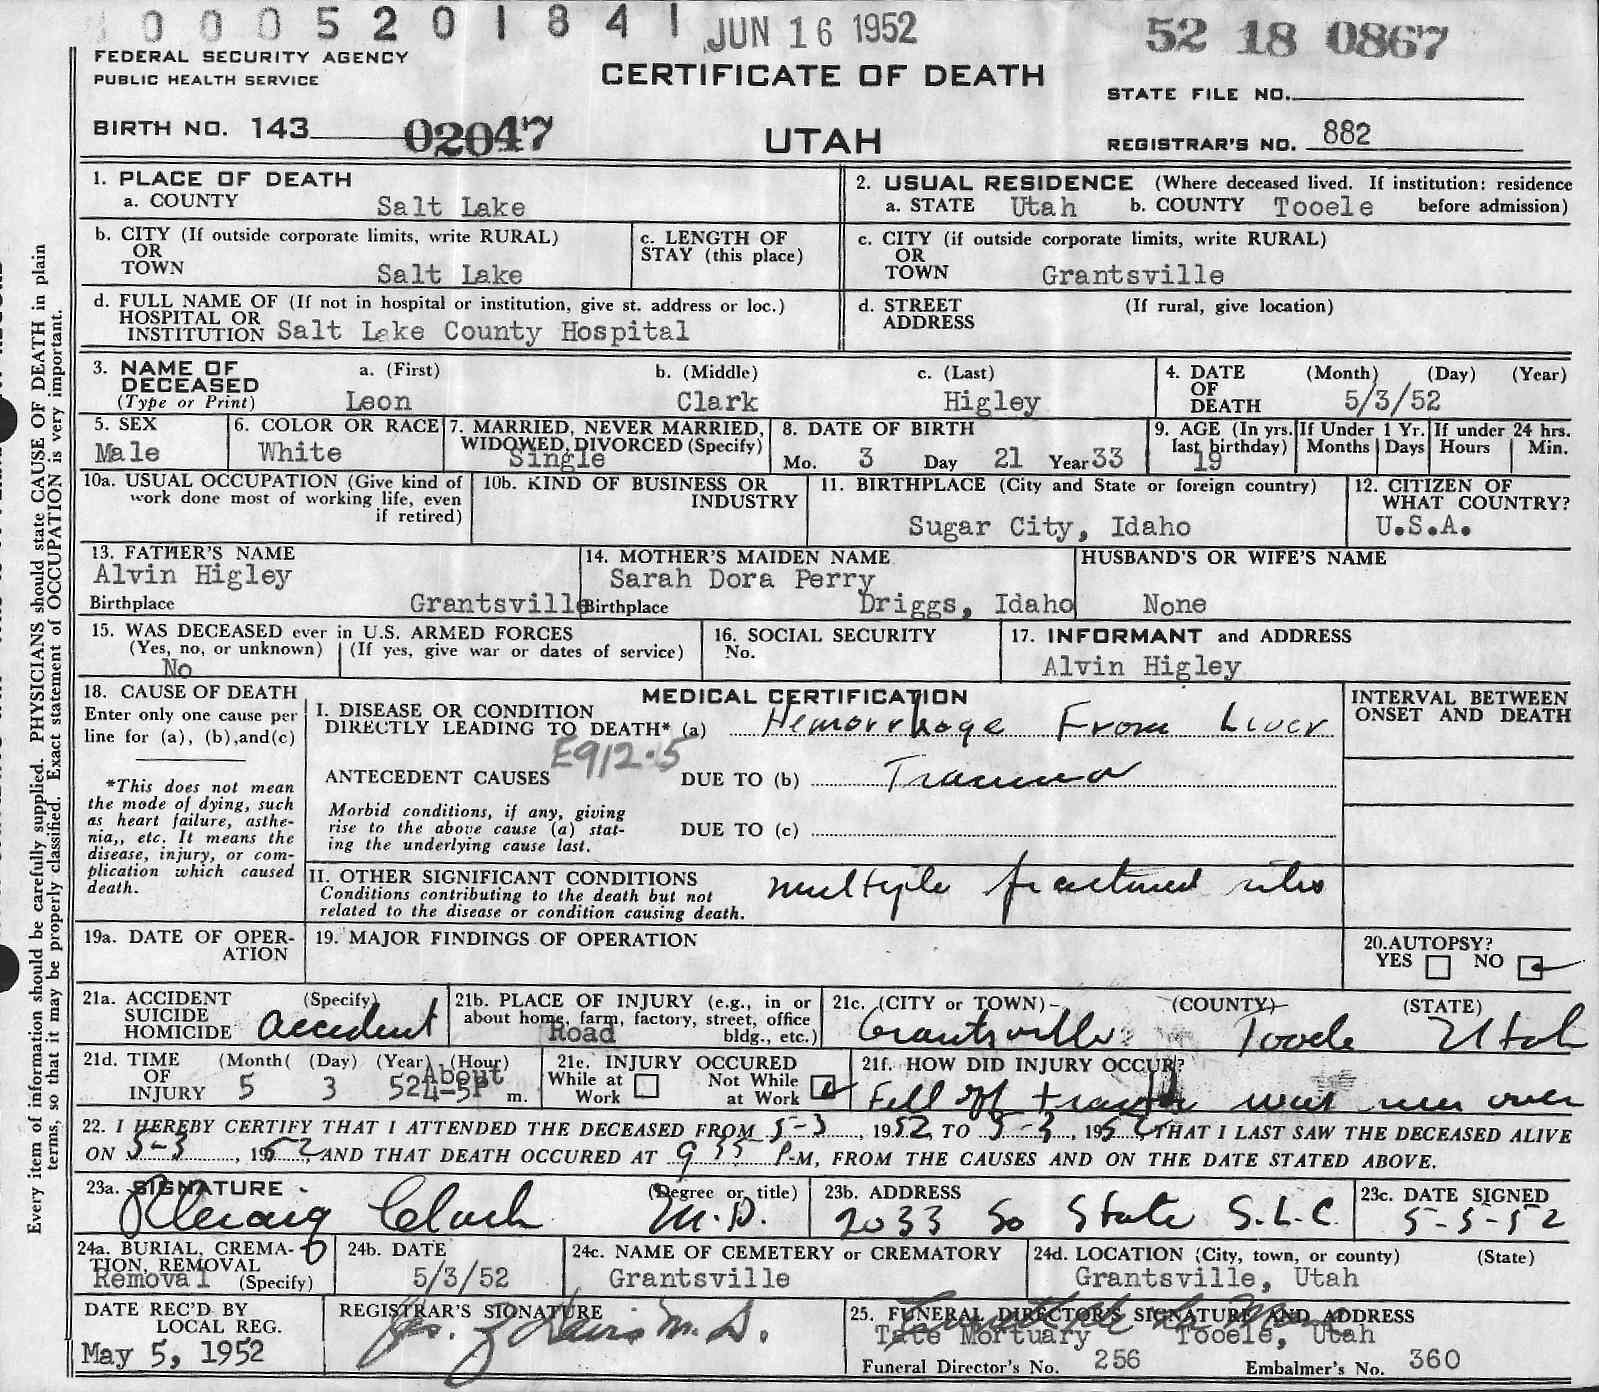 0 0 0 5 2 0 1 8 4 1 JUN 16 1952 52 18 0867
FEDERAL SECURITY AGENCY
PUBLIC HEALTH SERVICE
CERTIFICATE OF DEATH
STATE FILE NO.
BIRTH NO. 143 02047
UTAH
REGISTRAR'S NO. 882
Every item of information should be carefully supplied. PHYSICIANS should state CAUSE OF DEATH in plain
terms, so that it may be properly classified. Exact statement of OCCUPATION is very important.
1. PLACE OF DEATH
a. COUNTY Salt Lake
2. USUAL RESIDENCE (Where deceased lived. If institution: residence
a. STATE Utah b. COUNTY Tooele before admission)
b. CITY (If outside corporate limits, write RURAL)
OR
TOWN Salt Lake
c. LENGTH OF
STAY (this place)
c. CITY (if outside corporate limits, write RURAL)
OR
TOWN Grantsville
d. FULL NAME OF (If not in hospital or institution, give st. address or loc.)
HOSPITAL OR
INSTITUTION Salt Lake County Hospital
d. STREET (If rural, give location)
ADDRESS
3. NAME OF a. (First) b. (Middle) c. (Last)
DECEASED
(Type or Print) Leon Clark Higley
4. DATE (Month) (Day) (Year)
OF
DEATH 5/3/52
5. SEX
Male
6. COLOR OR RACE
White
7. MARRIED, NEVER MARRIED,
WIDOWED, DIVORCED (Specify)
Single
8. DATE OF BIRTH
Mo. 3 Day 21 Year 33
9. AGE (In yrs.
last birthday)
19
If Under 1 Yr.
Months Days
If under 24 hrs.
Hours Min.
10a. USUAL OCCUPATION (Give kind of
work done most of working life, even
if retired)
10b. KIND OF BUSINESS OR
INDUSTRY
11. BIRTHPLACE (City and State or foreign country)
Sugar City, Idaho
12. CITIZEN OF
WHAT COUNTRY?
U.S.A.
13. FATHER'S NAME
Alvin Higley
Birthplace Grantsville
14. MOTHER'S MAIDEN NAME
Sarah Dora Perry
Birthplace Driggs, Idaho
HUSBAND'S OR WIFE'S NAME
None
15. WAS DECEASED ever in U.S. ARMED FORCES
(Yes, no, or unknown) (If yes, give war or dates of service)
No
16. SOCIAL SECURITY
No.
17. INFORMANT and ADDRESS
Alvin Higley
18. CAUSE OF DEATH
Enter only one cause per
line for (a), (b),and(c)
*This does not mean
the mode of dying, such
as heart failure, asthe-
nia,, etc. It means the
disease, injury, or com-
plication which caused
death.
MEDICAL CERTIFICATION
I. DISEASE OR CONDITION
DIRECTLY LEADING TO DEATH* (a) Hemorrhage From Liver
E912.5
ANTECEDENT CAUSES DUE TO (b) Trauma
Morbid conditions, if any, giving
rise to the above cause (a) stat-
ing the underlying cause last.
DUE TO (c)
II. OTHER SIGNIFICANT CONDITIONS
Conditions contributing to the death but not
related to the disease or condition causing death.
multiple fractured ribs
INTERVAL BETWEEN
ONSET AND DEATH
19a. DATE OF OPER-
ATION
19. MAJOR FINDINGS OF OPERATION
20.AUTOPSY?
YES NO
21a. ACCIDENT (Specify)
SUICIDE
HOMICIDE accident
21b. PLACE OF INJURY (e.g., in or
about home, farm, factory, street, office
bldg., etc.)
Road
21c. (CITY or TOWN) (COUNTY) (STATE)
Grantsville Tooele Utah
21d. TIME (Month( (Day) (Year) (Hour)
OF About
INJURY 5 3 52 4-5P m.
21e. INJURY OCCURED
While at Not While
Work at Work
21f. HOW DID INJURY OCCUR?
Fell off tractor was run over
22. I HEREBY CERTIFY THAT I ATTENDED THE DECEASED FROM 5-3, 1952, TO 5-3, 1952, THAT I LAST SAW THE DECEASED ALIVE
ON 5-3, 1952, AND THAT DEATH OCCURED AT 9 35 P.M, FROM THE CAUSES AND ON THE DATE STATED ABOVE.
23a. SIGNATURE (Degree or title)
Craig Clark M.D.
23b. ADDRESS
2033 So State S.L.C.
23c. DATE SIGNED
5-5-52
24a. BURIAL, CREMA-
TION, REMOVAL
Removal (Specify)
24b. DATE
5/3/52
24c. NAME OF CEMETERY or CREMATORY
Grantsville
24d. LOCATION (City, town, or county) (State)
Grantsville, Utah
DATE REC'D BY
LOCAL REG.
May 5, 1952
REGISTRAR'S SIGNATURE
M.D.
25. FUNERAL DIRECTOR'S SIGNATURE AND ADDRESS
Tate Mortuary Tooele, Utah
Funeral Director's No. 256 Embalmer's No. 360